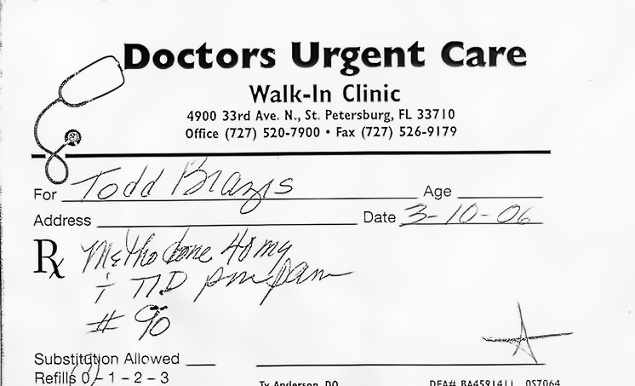 Doctors Urgent Care
Walk-In Clinic
4900 33rd Ave. N., St. Petersburg, FL 33710
Office (727) 520-7900 • Fax (727) 526-9179
For Todd Brazis Age
Address Date 3-10-06
Rx Methadone 40 mg
† TID prn pain
# 90
Substitution Allowed
Refills 0 - 1 - 2 - 3
Ty Anderson, DO DEA# BA4591411 OS7064